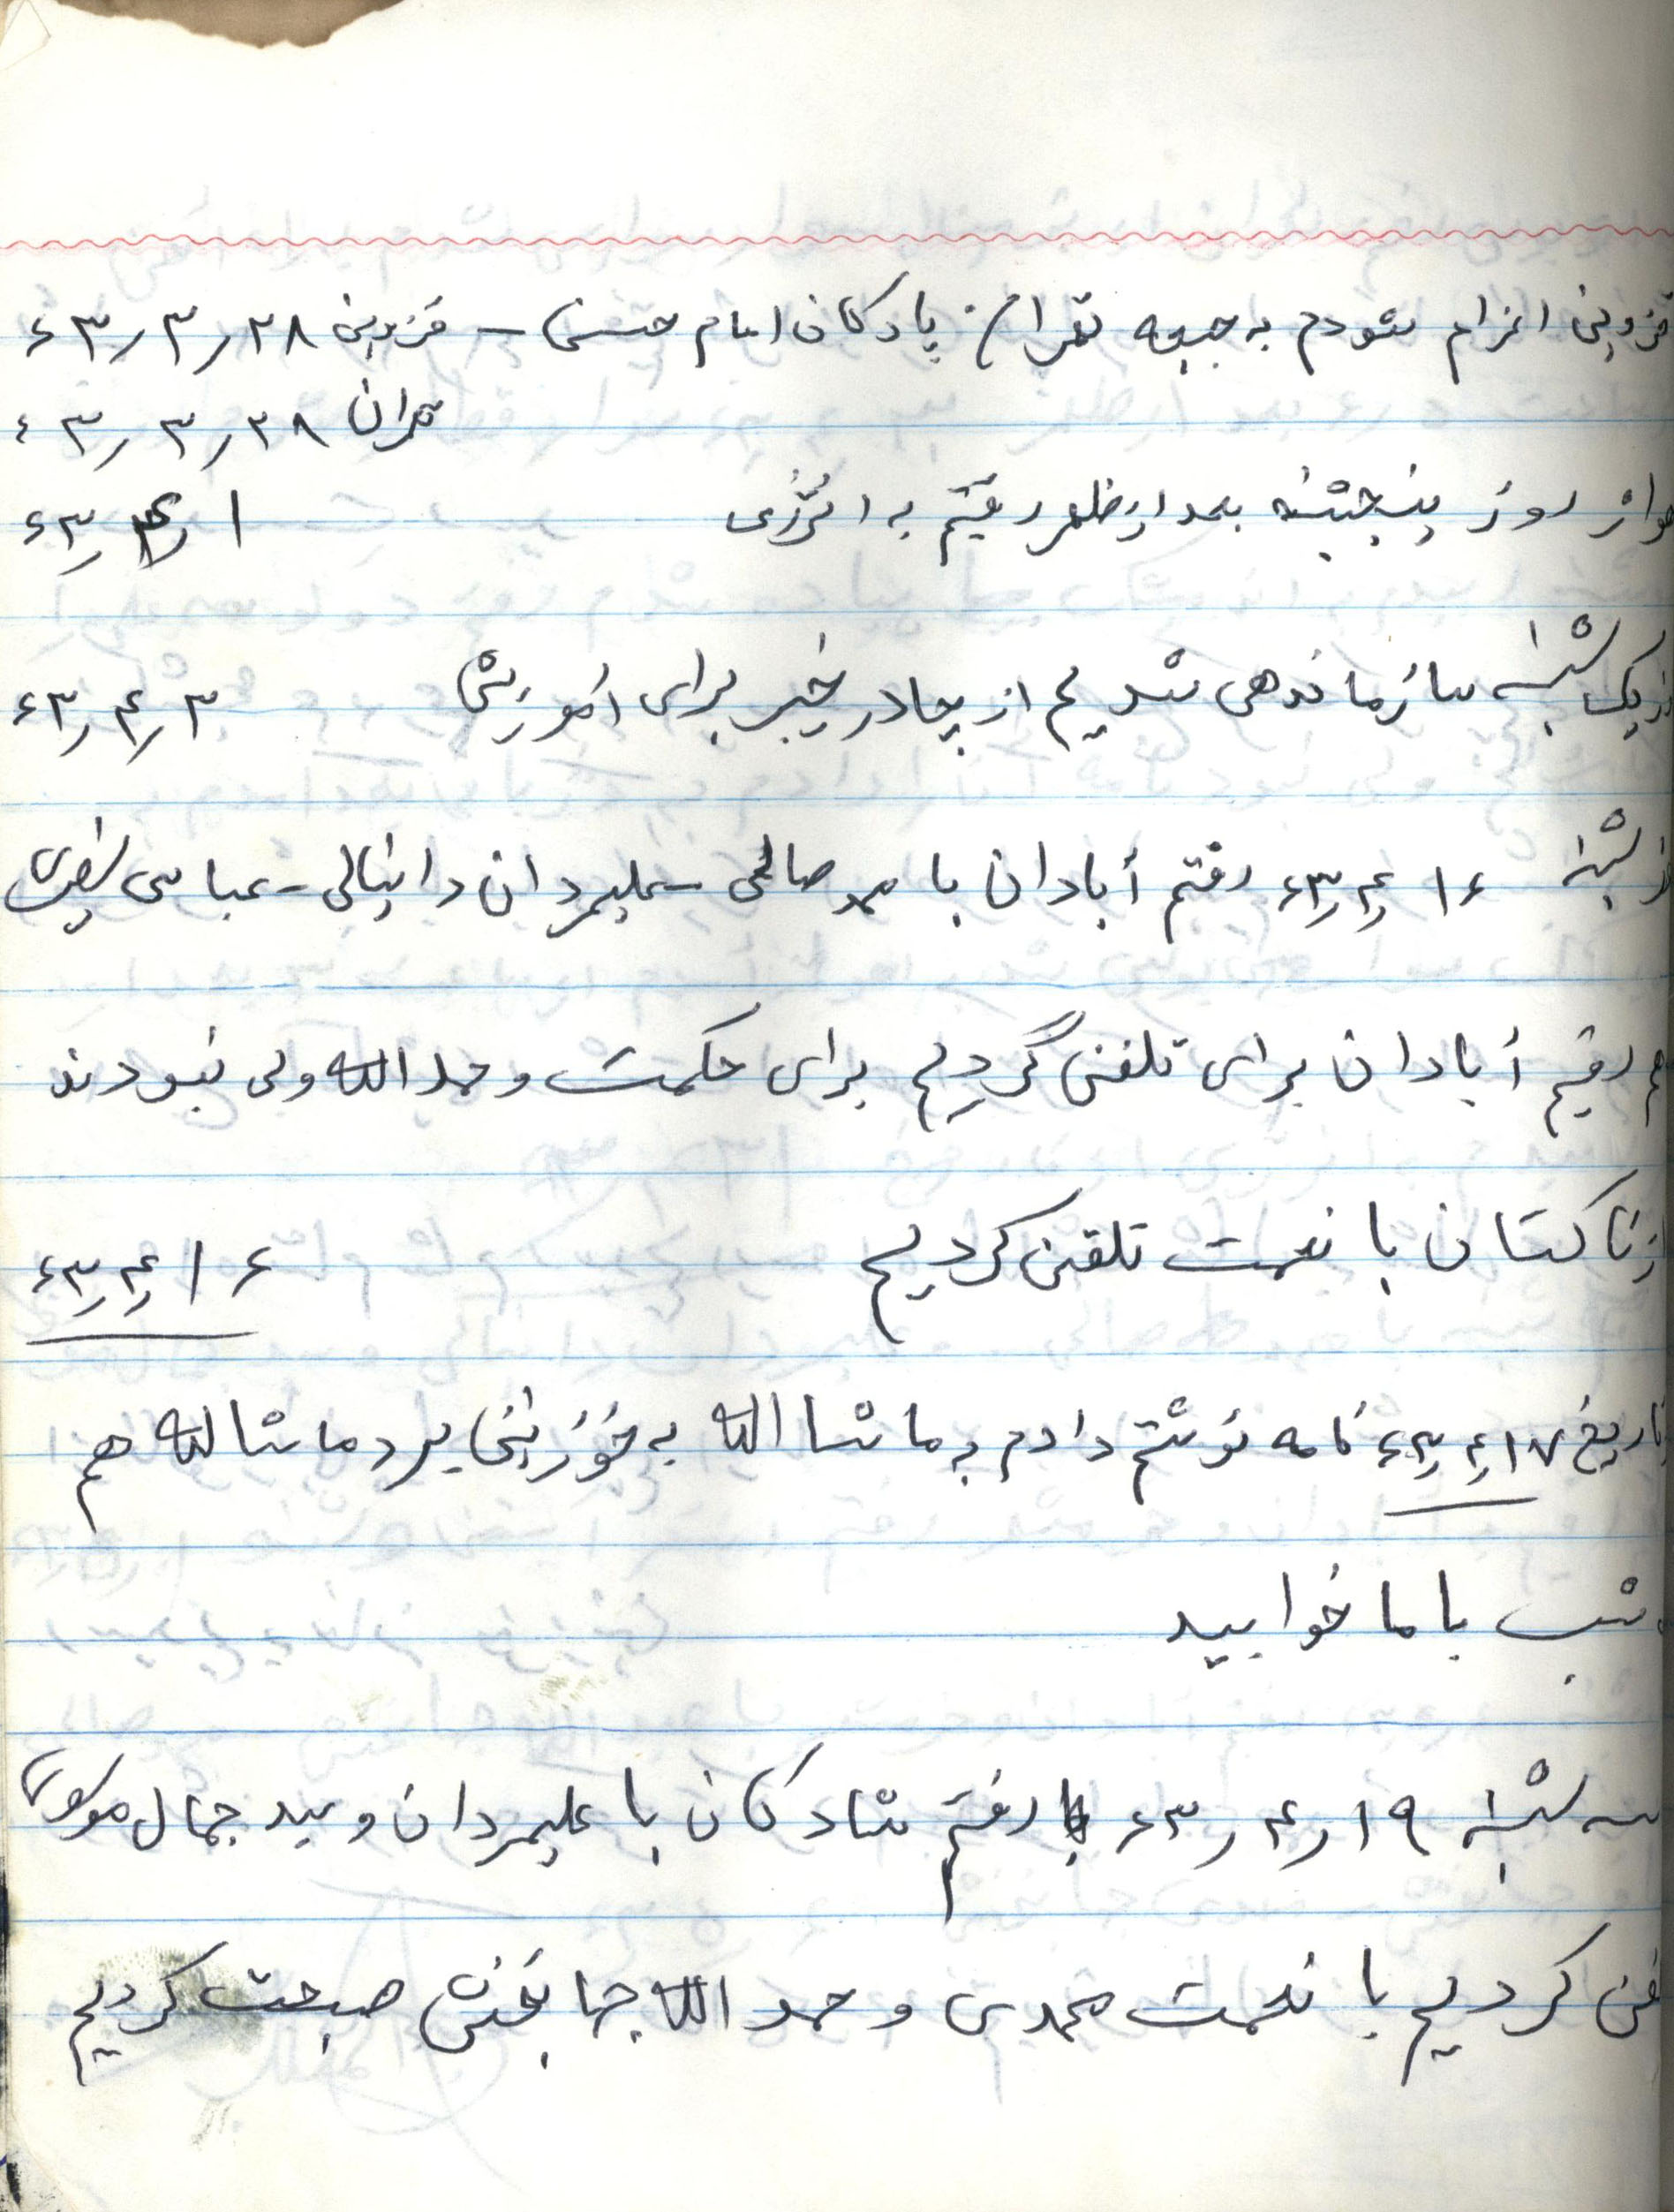 قزوین اعزام شودم به جبهه تهران پادکان امام حسن – قزوین ۶۳٫۳٫۲۸
تهران ۶۳٫۳٫۲۸
روز پنجشنبه بعداز ظهر رفتیم به انرژی ۶۳٫۴٫۱
یک شنبه سازماندهی شدیم از چادر خیبر برای آموزش ۶۳٫۴٫۳
شنبه ۶۳٫۴٫۱۶ رفتم آبادان با صالحی – علیمردان دانیالی – عباس
هم رفتیم آبادان برای تلفن کردیم برای حکمت و حمدالله ولی نبودند
تاکستان با نعمت تلفن کردیم ۶۳٫۴٫۱۶
تاریخ ۶۳٫۴٫۱۷ نامه نوشتم دادم به ماشا الله به خوزنین برد ماشالله هم
شب با ما خوابید
سه شنبه ۶۳٫۴٫۱۹ رفتم شادکان با علیمردان و سید جمال موسوی
فن کردیم با نعمت محمدی و حمد الله جهانبخش صبحت کردیم